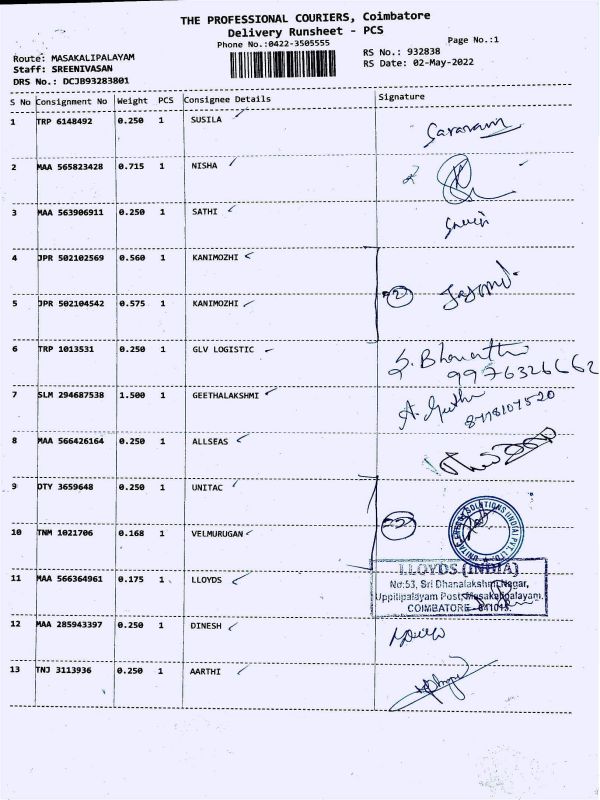 THE PROFESSIONAL COURIERS, Coimbatore
Delivery Runsheet - PCS
Phone No.:0422-3505555
Page No.:1
Route: MASAKALIPALAYAM
Staff: SREENIVASAN
DRS No.: DCJB93283801
RS No.: 932838
RS Date: 02-May-2022
S No Consignment No Weight PCS Consignee Details Signature
1 TRP 6148492 0.250 1 SUSILA
2 MAA 565823428 0.715 1 NISHA
3 MAA 563906911 0.250 1 SATHI
4 JPR 502102569 0.560 1 KANIMOZHI
5 JPR 502104542 0.575 1 KANIMOZHI
6 TRP 1013531 0.250 1 GLV LOGISTIC
S. Bharathi
9976326662
7 SLM 294687538 1.500 1 GEETHALAKSHMI
A. Geetha
8778107520
8 MAA 566426164 0.250 1 ALLSEAS
9 OTY 3659648 0.250 1 UNITAC
10 TNM 1021706 0.168 1 VELMURUGAN
11 MAA 566364961 0.175 1 LLOYDS
LLOYDS (INDIA)
No:53, Sri Dhanalakshmi Nagar,
Uppilipalayam Post, Masakalipalayam,
COIMBATORE - 641015.
12 MAA 285943397 0.250 1 DINESH
13 TNJ 3113936 0.250 1 AARTHI